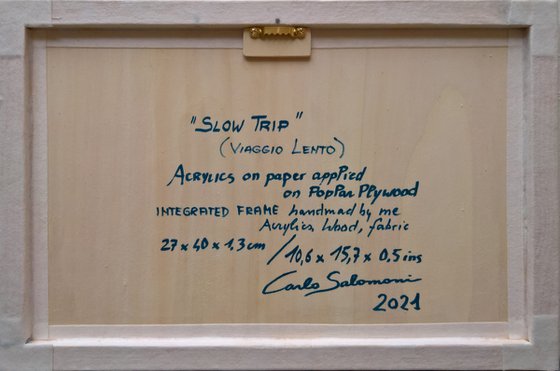 "SLOW TRIP"
(VIAGGIO LENTO)
ACRYLICS on paper applied
on Poplar Plywood
INTEGRATED FRAME handmad by me
Acrylics, Wood, fabric
27 x 40 x 1,3 cm / 10,6 x 15,7 x 0,5 ins
Carlo Salomoni
2021